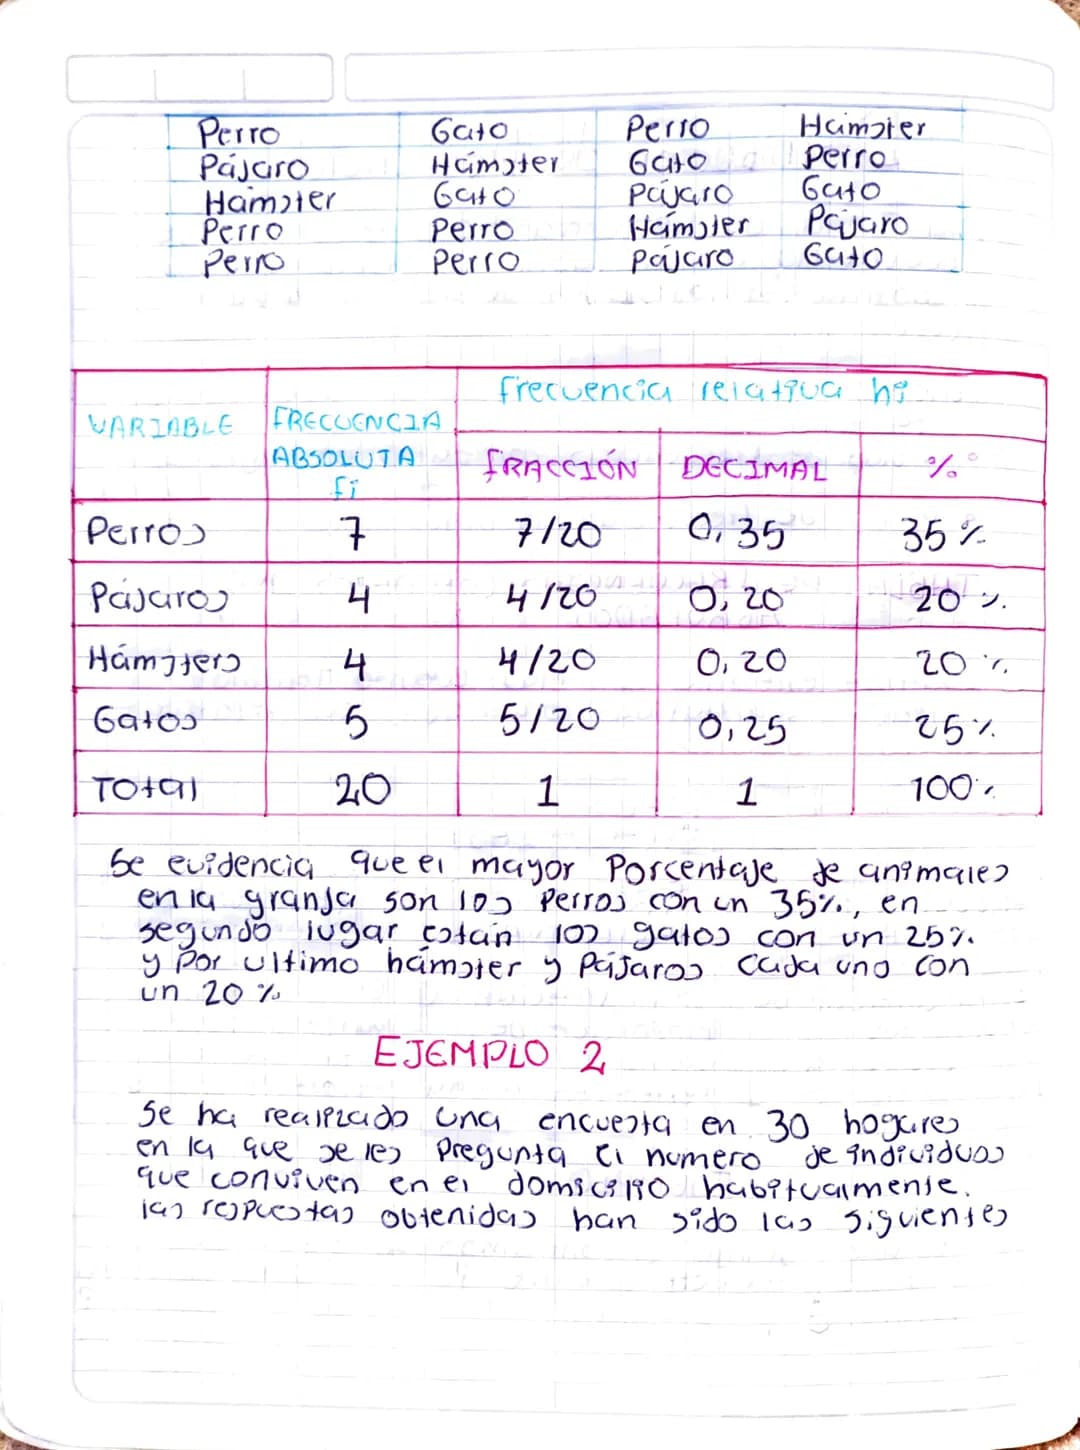 Perro Gato Perro Hámster
Pájaro Hámster Gato Perro
Hámster Gato Pájaro Gato
Perro Perro Hámster Pájaro
Perro Perro Pájaro Gato
frecuencia relativa hi
VARIABLE FRECUENCIA
ABSOLUTA
fi
fRACCIÓN DECIMAL %
Perros 7 7/20 0,35 35%
Pájaros 4 4/20 0,20 20%
Hámsters 4 4/20 0,20 20%
Gatos 5 5/20 0,25 25%
Total 20 1 1 100%
Se evidencia que el mayor Porcentaje de animales
en la granja son los Perros con un 35%, en
segundo lugar están los gatos con un 25%.
y por ultimo hámster y Pájaros cada uno con
un 20%
EJEMPLO 2
Se ha realizado una encuesta en 30 hogares
en la que se les Pregunta el numero de individuos
que conviven en el domicilio habitualmente.
las respuestas obtenidas han sido las siguientes